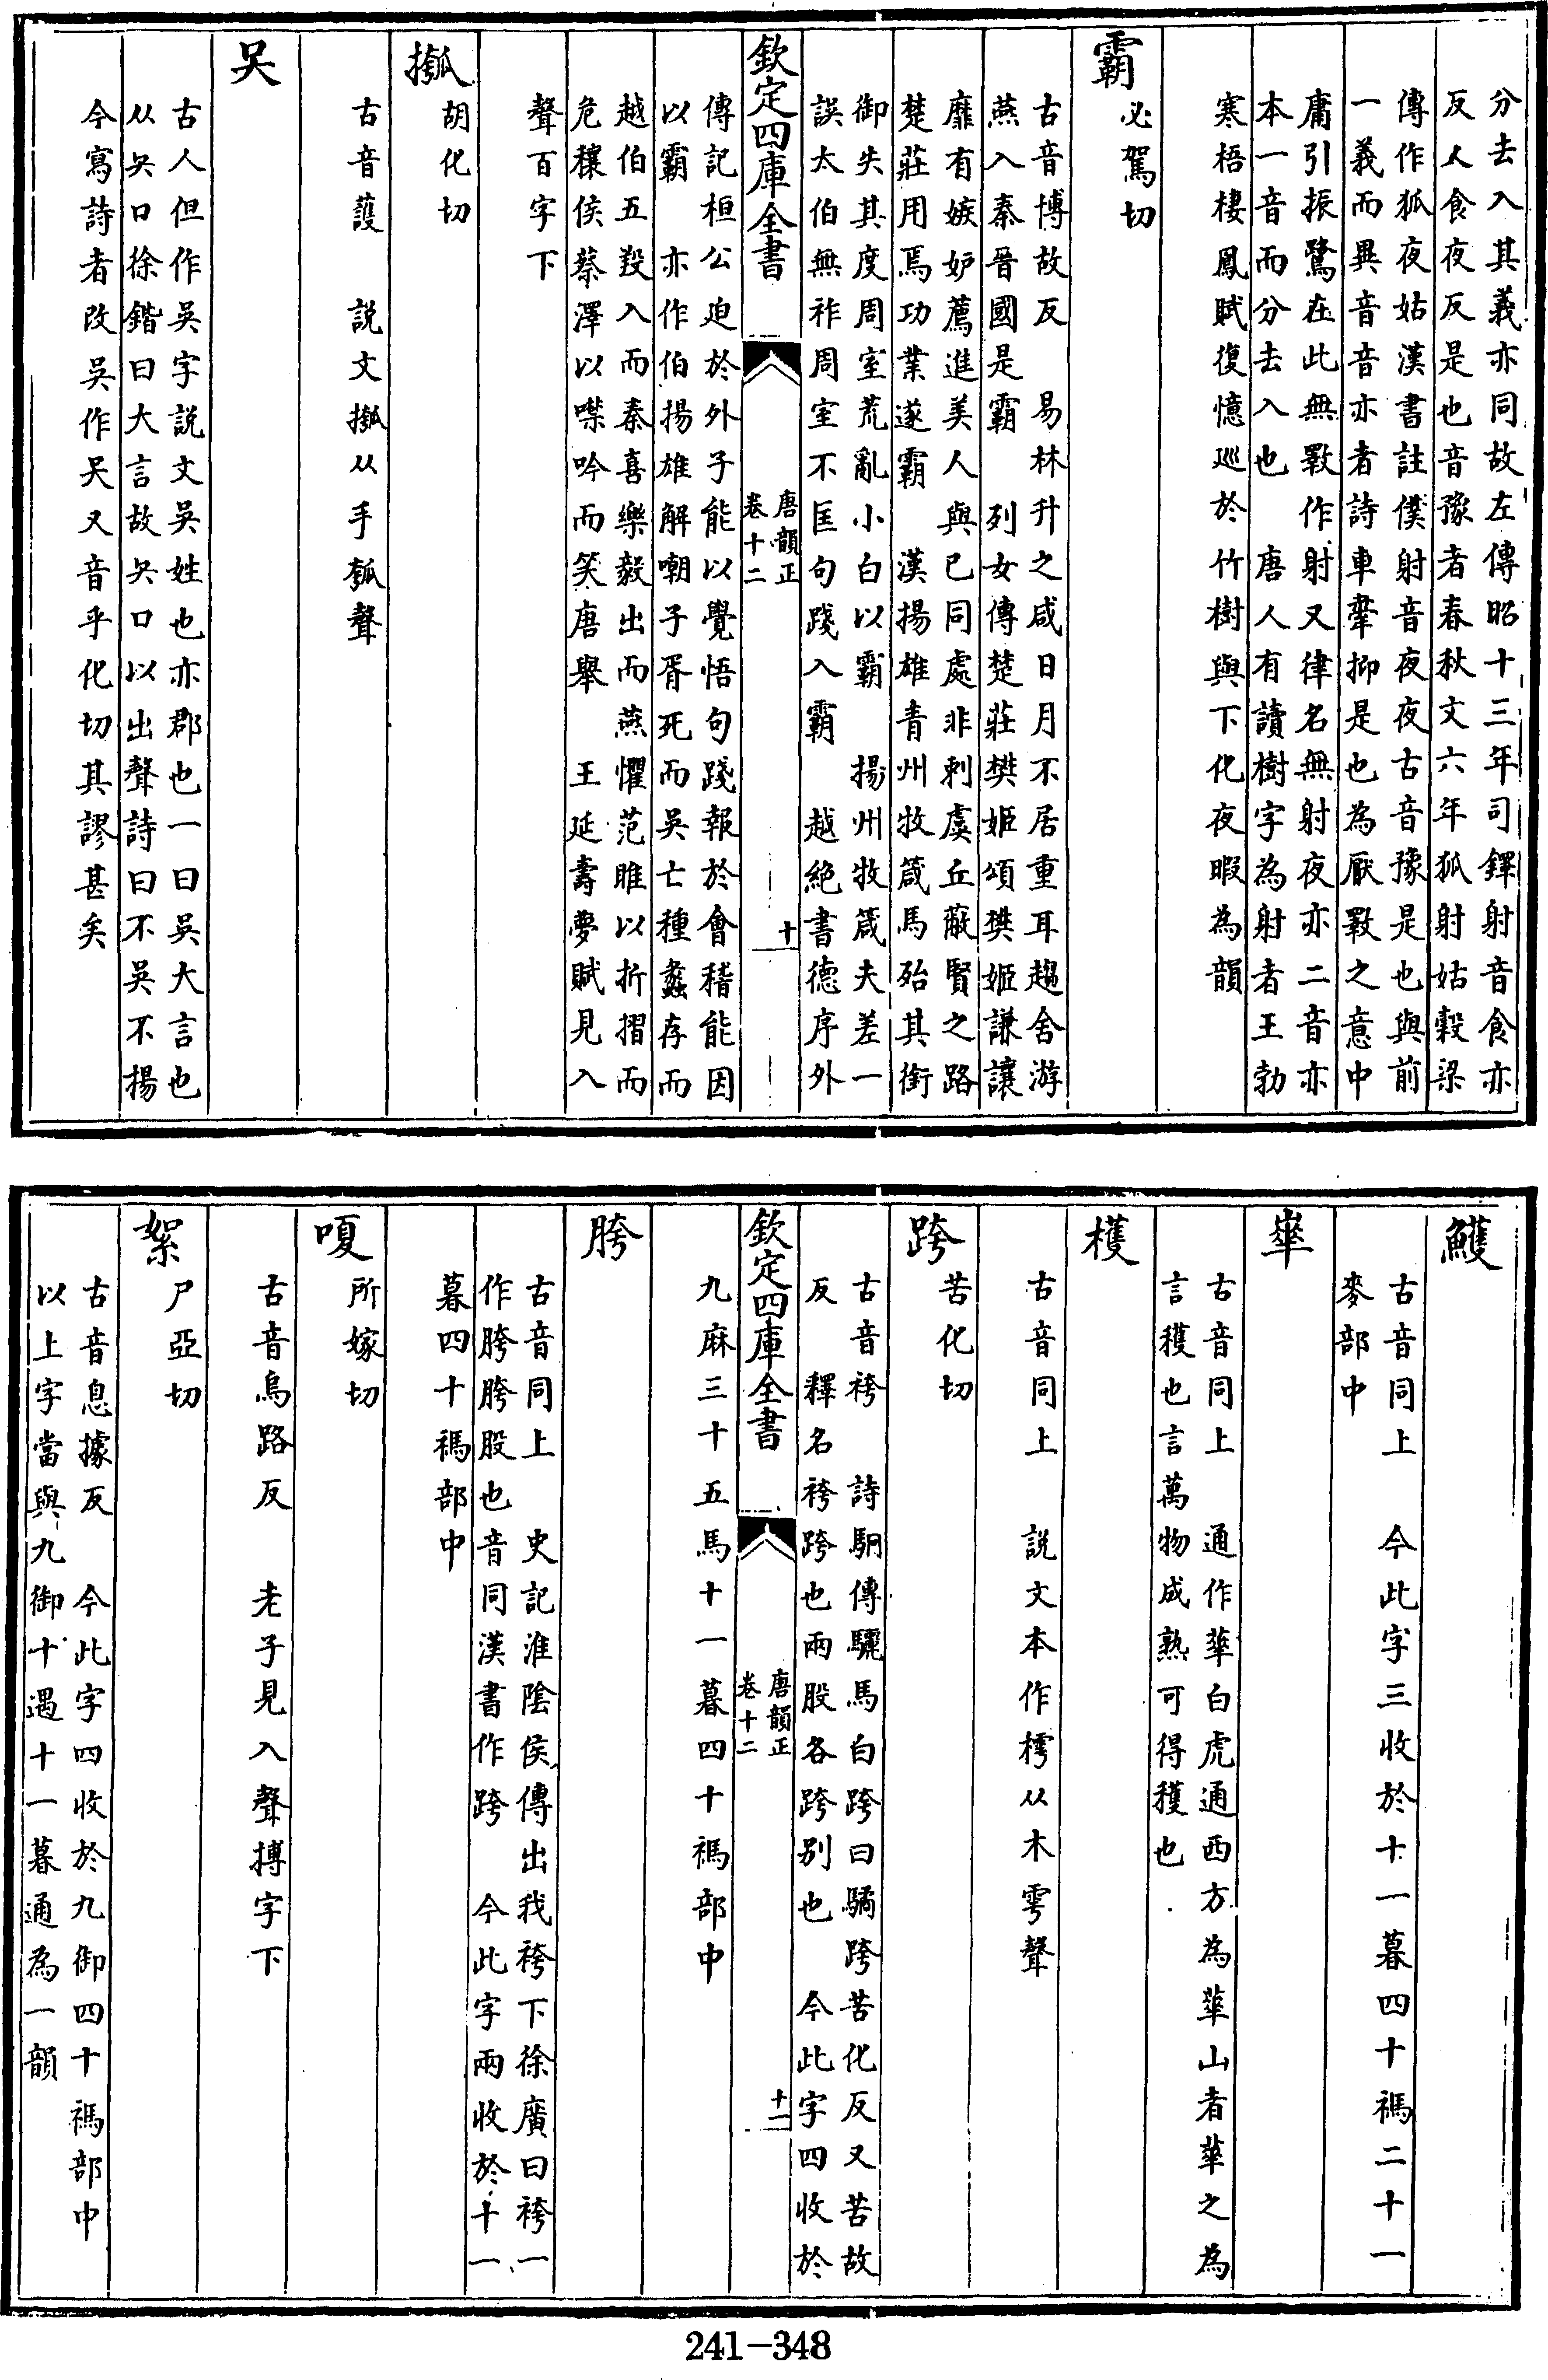 分去入其義亦同故左傳昭十三年司鐸射音食亦
反又食夜反是也音豫者春秋文六年狐射姑穀梁
傳作狐夜姑漢書註僕射音夜夜古音豫是也與前
一義而異音音亦者詩車舝抑是也為厭斁之意中
庸引振鷺在此無斁作射又律名無射射夜亦二音亦
本一音而分去入也　唐人有讀樹字為射者王勃
寒梧棲鳳賦復憶巡於竹樹與下化夜暇為韻
霸
必駕切
古音博故反　易林升之咸日月不居重耳趨舍游
燕入秦晉國是霸　列女傳楚莊樊姬頌樊姬謙讓
靡有嫉妒薦進美人與已同處非刺虞丘蔽賢之路
楚莊用焉功業遂霸　漢揚雄青州牧箴馬殆其銜
御失其度周室荒亂小白以霸　揚州牧箴夫差一
誤太伯無祚周室不匡句踐入霸　越絕書德序外
欽定四庫全書
唐韻正
卷十二
十
傳記桓公迫於外子能以覺悟句踐報於會稽能因
以霸　亦作伯揚雄解嘲子胥死而吳亡種蠡存而
越伯五羖入而秦喜樂毅出而燕懼范雎以折摺而
危穰侯蔡澤以噤吟而笑唐舉　王延壽夢賦見入
聲百字下
摦
胡化切
古音護　説文摦从手瓠聲
吴
古人但作吳字説文吳姓也亦郡也一曰吳大言也
从夨口徐鍇曰大言故夨口以出聲詩曰不吳不揚
今寫詩者改吳作吴又音乎化切其謬甚矣
鱯
古音同上　今此字三收於十一暮四十禡二十一
麥部中
崋
古音同上　通作華白虎通西方為華山者華之為
言穫也言萬物成熟可得穫也
檴
古音同上　説文本作樗从木雩聲
跨
苦化切
古音袴　詩駉傳驪馬白跨曰驈跨苦化反又苦故
反　釋名袴跨也兩股各跨别也　今此字四收於
欽定四庫全書
唐韻正
卷十二
十一
九麻三十五馬十一暮四十禡部中
胯
古音同上　史記淮陰侯傳出我袴下徐廣曰袴一
作胯胯股也音同漢書作跨　今此字兩收於十一
暮四十禡部中
嗄
所嫁切
古音烏路反　老子見入聲搏字下
絮
尸亞切
古音息據反　今此字四收於九御四十禡部中
以上字當與九御十遇十一暮通為一韻
241-348